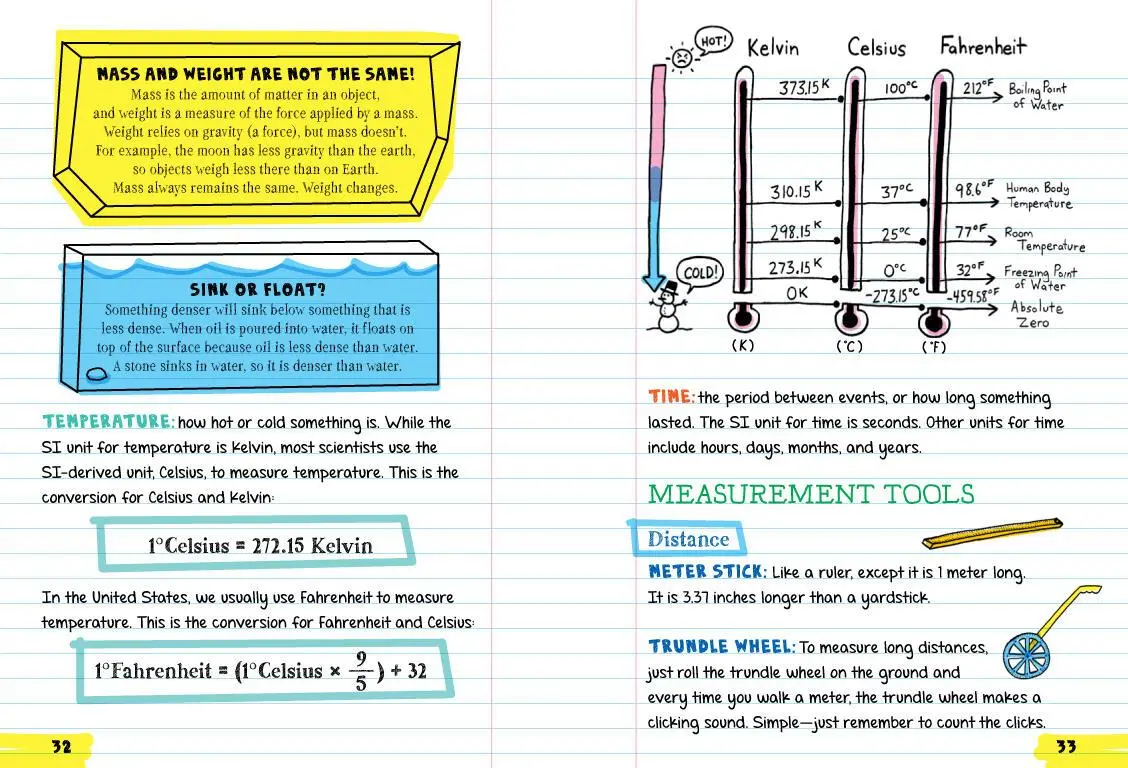 MASS AND WEIGHT ARE NOT THE SAME!
Mass is the amount of matter in an object,
and weight is a measure of the force applied by a mass.
Weight relies on gravity (a force), but mass doesn't.
For example, the moon has less gravity than the earth,
so objects weigh less there than on Earth.
Mass always remains the same. Weight changes.
SINK OR FLOAT?
Something denser will sink below something that is
less dense. When oil is poured into water, it floats on
top of the surface because oil is less dense than water.
A stone sinks in water, so it is denser than water.
TEMPERATURE: how hot or cold something is. While the
SI unit for temperature is Kelvin, most scientists use the
SI-derived unit, Celsius, to measure temperature. This is the
conversion for Celsius and Kelvin:
1°Celsius = 272.15 Kelvin
In the United States, we usually use Fahrenheit to measure
temperature. This is the conversion for Fahrenheit and Celsius:
1°Fahrenheit = (1°Celsius × 9/5) + 32
32
HOT!
Kelvin Celsius Fahrenheit
373.15 K 100°C 212°F Boiling Point
of Water
310.15 K 37°C 98.6°F Human Body
Temperature
298.15 K 25°C 77°F Room
Temperature
COLD!
273.15 K 0°C 32°F Freezing Point
of Water
0K -273.15°C -459.58°F Absolute
Zero
(K) (°C) (°F)
TIME: the period between events, or how long something
lasted. The SI unit for time is seconds. Other units for time
include hours, days, months, and years.
MEASUREMENT TOOLS
Distance
METER STICK: Like a ruler, except it is 1 meter long.
It is 3.37 inches longer than a yardstick.
TRUNDLE WHEEL: To measure long distances,
just roll the trundle wheel on the ground and
every time you walk a meter, the trundle wheel makes a
clicking sound. Simple—just remember to count the clicks.
33